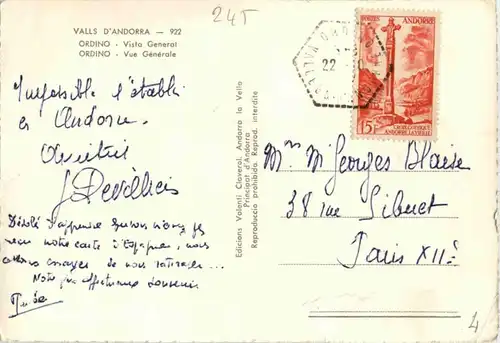 245
VALLS D'ANDORRA — 922
ORDINO - Vista General
ORDINO - Vue Générale
Impossible d'établir
en Andorre.
Amitiés
J Devilliers
Désolé d'apprendre que vous n'ayez pas
reçu notre carte d'Espagne, nous
allons essayer de nous rattraper...
Notre plus affectueux souvenir
Edicions Valentí Claverol, Andorra la Vella
Principat d'Andorra
Reproducció prohibida. Reprod. interdite
POSTES ANDORRE
15F
CROIX GOTHIQUE
ANDORRE-LA-VIEILLE
22
Mme M Georges Blaise
38 rue Sibuet
Paris XIIè
4